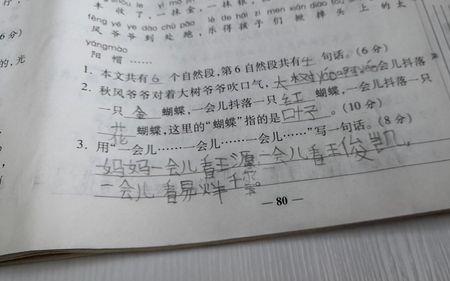 风爷爷到处跑,乐得孩子们掀掉头上的太
yángmào
阳帽……
6 分)
的,光
1. 本文共有 6 个自然段,第 6 自然段共有句话。(6 分)
2. 秋风爷爷对着大树爷爷吹口气,大会儿抖落
一只 金 蝴蝶,一会儿抖落一只 红 蝴蝶,一会儿抖落一只
花 蝴蝶,这里的“蝴蝶”指的是 叶子。(10 分)
3. 用“一会儿……一会儿……一会儿……”写一句话。(8 分)
妈妈一会儿看王源,一会儿看王俊凯,
一会儿看易烊千玺。
— 80 —